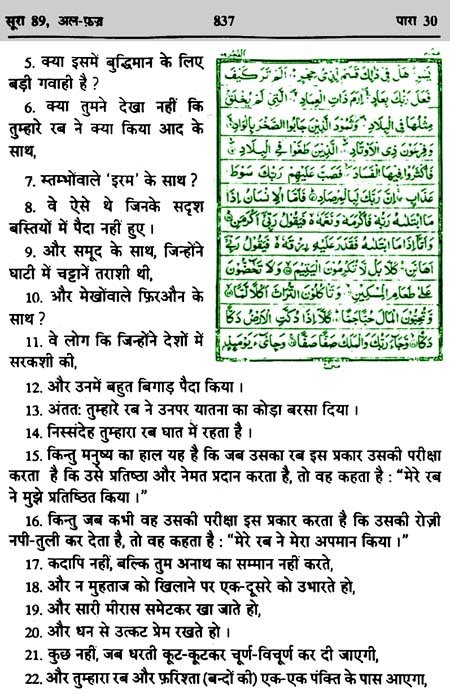 सूरा 89, अल-फ़ज्र 837 पारा 30
5. क्या इसमें बुद्धिमान के लिए
बड़ी गवाही है ?
6. क्या तुमने देखा नहीं कि
तुम्हारे रब ने क्या किया आद के
साथ,
7. स्तम्भोंवाले 'इरम' के साथ ?
8. वे ऐसे थे जिनके सदृश
बस्तियों में पैदा नहीं हुए ।
9. और समूद के साथ, जिन्होंने
घाटी में चट्टानें तराशी थी,
10. और मेखोंवाले फ़िरऔन के
साथ ?
11. वे लोग कि जिन्होंने देशों में
सरकशी की,
يَسْرِ هَلْ فِي ذَٰلِكَ قَسَمٌ لِّذِي حِجْرٍ اَلَمْ تَرَ كَيْفَ
فَعَلَ رَبُّكَ بِعَادٍ اِرَمَ ذَاتِ الْعِمَادِ الَّتِي لَمْ يُخْلَقْ
مِثْلُهَا فِي الْبِلَادِ وَثَمُودَ الَّذِينَ جَابُوا الصَّخْرَ بِالْوَادِ
وَفِرْعَوْنَ ذِي الْاَوْتَادِ الَّذِينَ طَغَوْا فِي الْبِلَادِ
فَاَكْثَرُوا فِيهَا الْفَسَادَ فَصَبَّ عَلَيْهِمْ رَبُّكَ سَوْطَ
عَذَابٍ اِنَّ رَبَّكَ لَبِالْمِرْصَادِ فَاَمَّا الْاِنْسَانُ اِذَا
مَا ابْتَلٰىهُ رَبُّهٗ فَاَكْرَمَهٗ وَنَعَّمَهٗ فَيَقُولُ رَبِّي اَكْرَمَنِ
وَاَمَّا اِذَا مَا ابْتَلٰىهُ فَقَدَرَ عَلَيْهِ رِزْقَهٗ فَيَقُولُ رَبِّي
اَهَانَنِ كَلَّا بَلْ لَّا تُكْرِمُونَ الْيَتِيمَ وَلَا تَحٰضُّونَ
عَلٰى طَعَامِ الْمِسْكِينِ وَتَاْكُلُونَ التُّرَاثَ اَكْلًا لَّمًّا
وَّتُحِبُّونَ الْمَالَ حُبًّا جَمًّا كَلَّا اِذَا دُكَّتِ الْاَرْضُ دَكًّا
دَكًّا وَّجَاءَ رَبُّكَ وَالْمَلَكُ صَفًّا صَفًّا وَجِايْءَ يَوْمَئِذٍ
12. और उनमें बहुत बिगाड़ पैदा किया ।
13. अंतत: तुम्हारे रब ने उनपर यातना का कोड़ा बरसा दिया ।
14. निस्संदेह तुम्हारा रब घात में रहता है ।
15. किन्तु मनुष्य का हाल यह है कि जब उसका रब इस प्रकार उसकी परीक्षा
करता है कि उसे प्रतिष्ठा और नेमत प्रदान करता है, तो वह कहता है : "मेरे रब
ने मुझे प्रतिष्ठित किया ।"
16. किन्तु जब कभी वह उसकी परीक्षा इस प्रकार करता है कि उसकी रोज़ी
नपी-तुली कर देता है, तो वह कहता है : "मेरे रब ने मेरा अपमान किया ।"
17. कदापि नहीं, बल्कि तुम अनाथ का सम्मान नहीं करते,
18. और न मुहताज को खिलाने पर एक-दूसरे को उभारते हो,
19. और सारी मीरास समेटकर खा जाते हो,
20. और धन से उत्कट प्रेम रखते हो ।
21. कुछ नहीं, जब धरती कूट-कूटकर चूर्ण-विचूर्ण कर दी जाएगी,
22. और तुम्हारा रब और फ़रिश्ता (बन्दों की) एक-एक पंक्ति के पास आएगा,